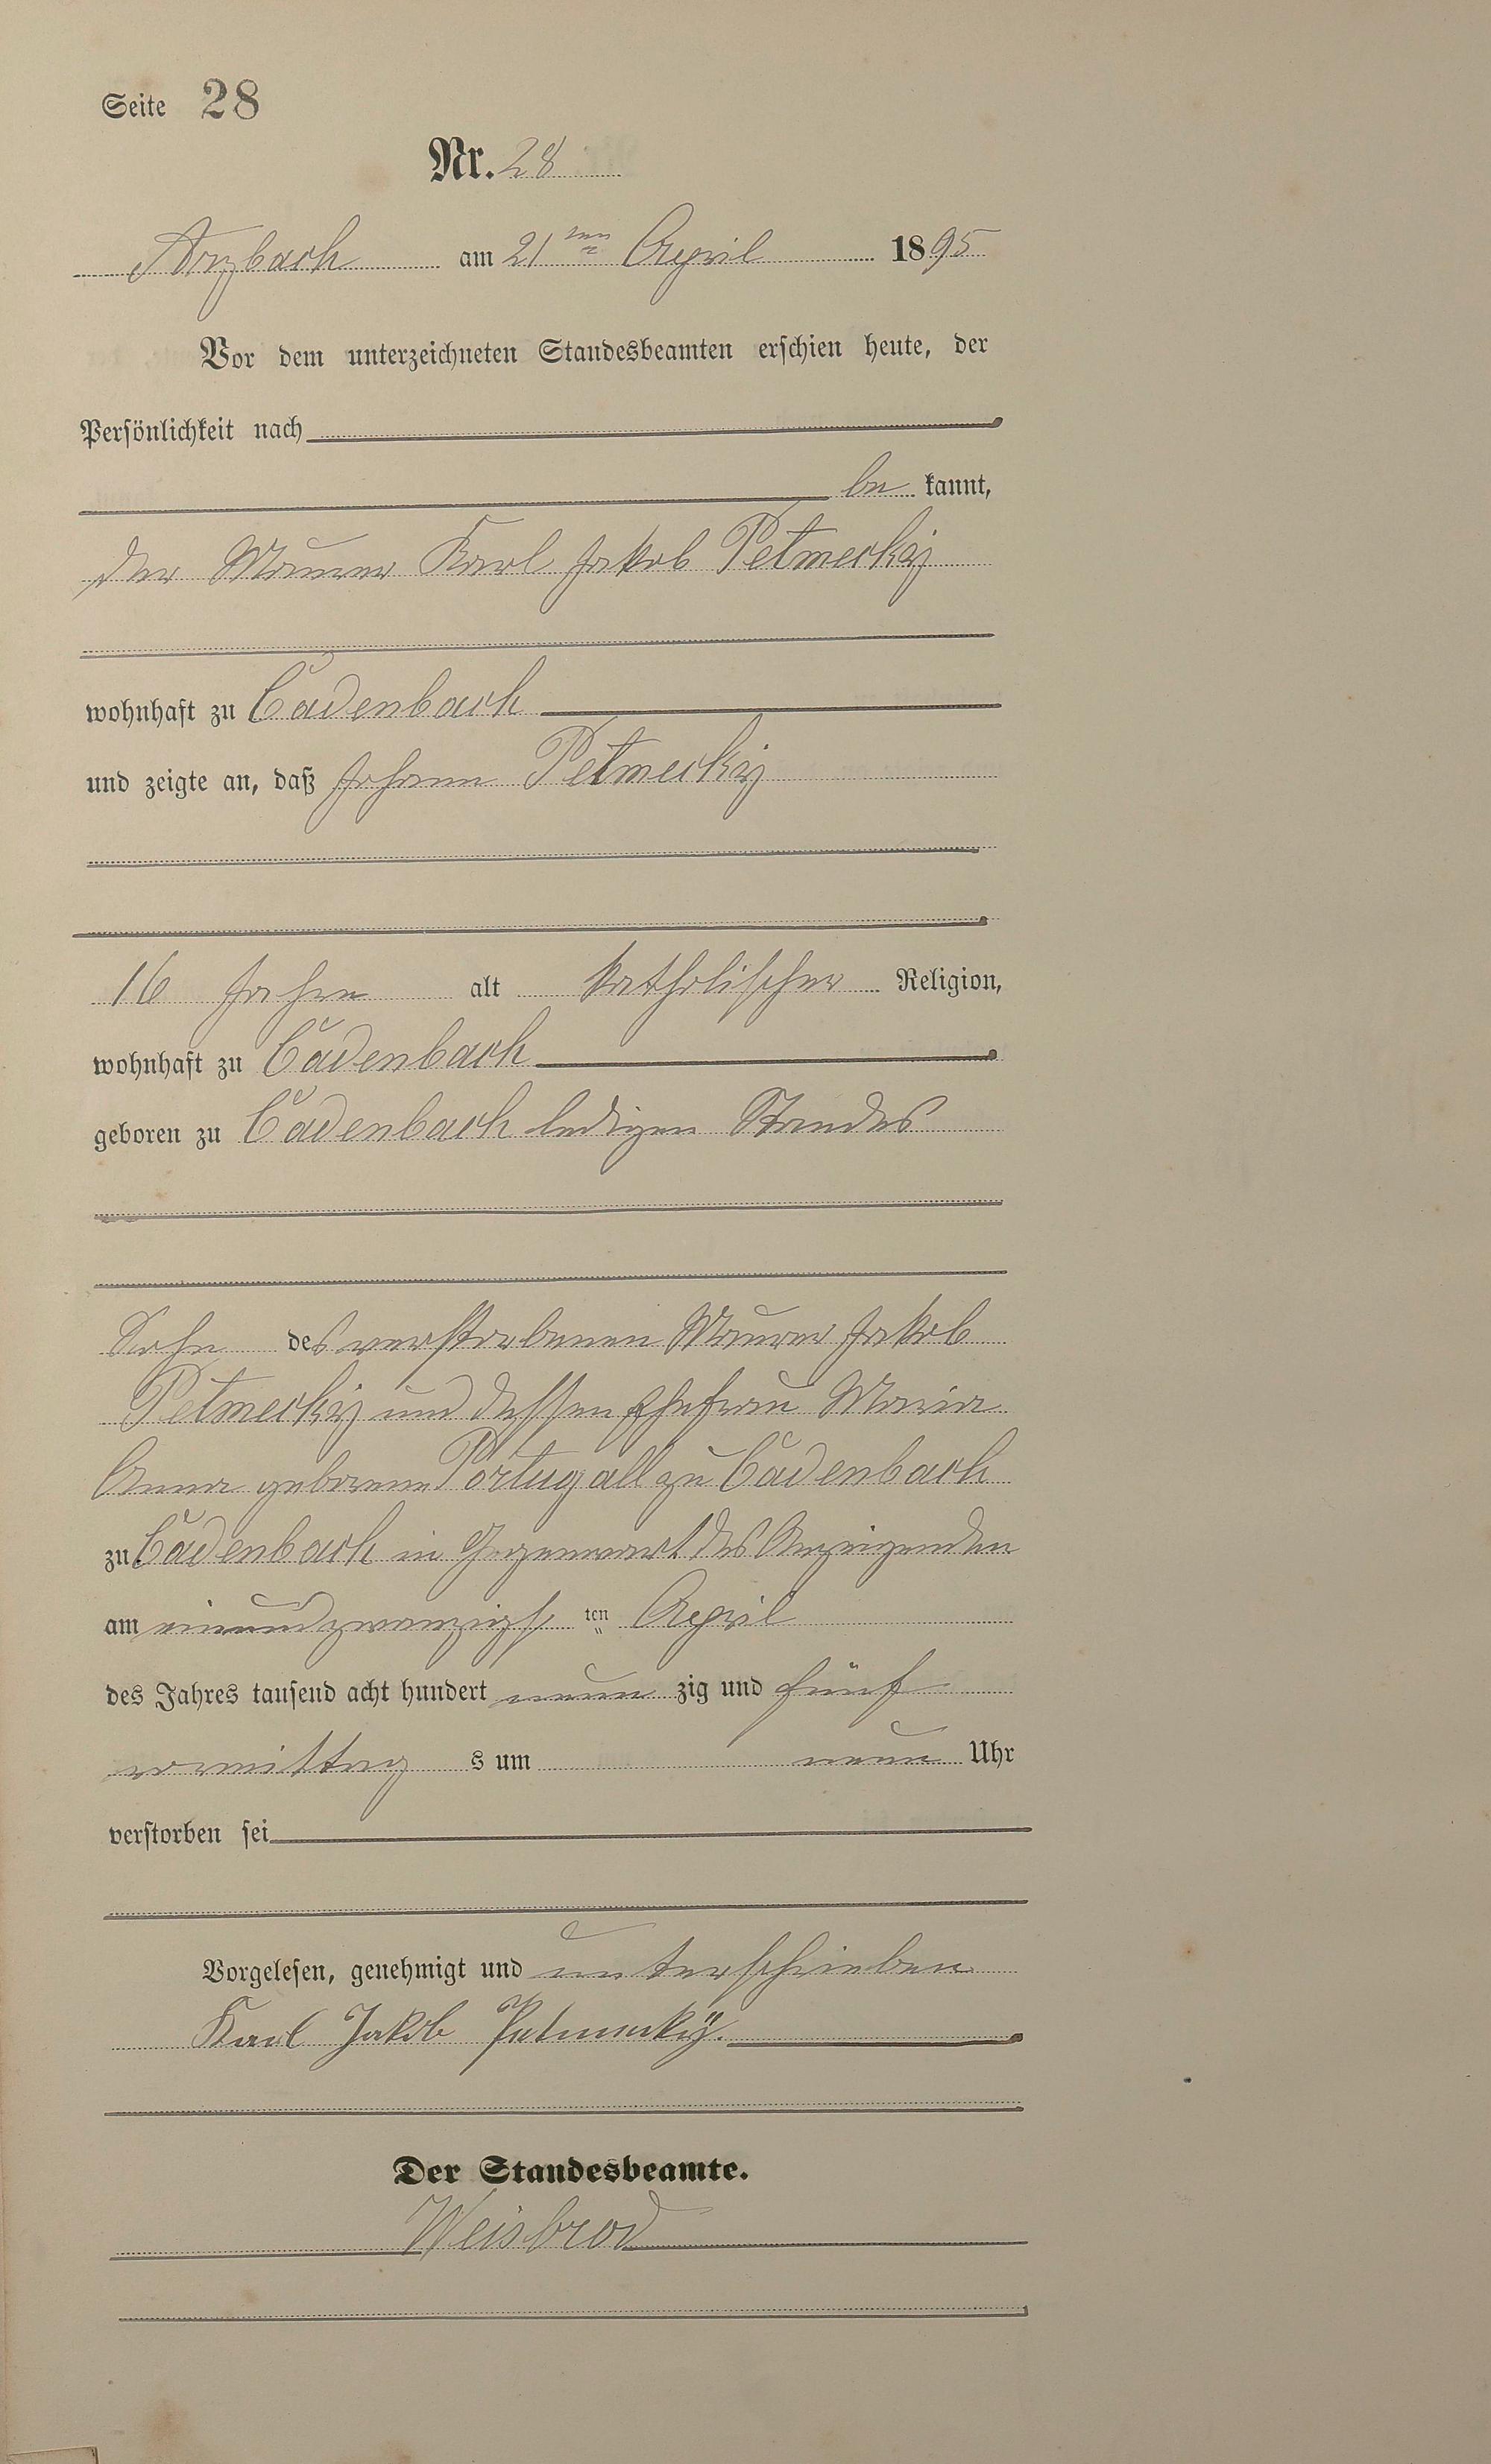 Seite 28
Nr. 28
Arzbach am 21ten April 1895
Vor dem unterzeichneten Standesbeamten erschien heute, der
Persönlichkeit nach
be kannt,
der Maurer Karl Jakob Petmecky
wohnhaft zu Cadenbach
und zeigte an, daß Johann Petmecky
16 Jahre alt katholischer Religion,
wohnhaft zu Cadenbach
geboren zu Cadenbach ledigen Standes
Sohn des verstorbenen Maurer Jakob
Petmecky und dessen Ehefrau Maria
Anna geborene Portugall zu Cadenbach
zu Cadenbach in Gegenwart des Anzeigenden
am einundzwanzigs ten April
des Jahres tausend acht hundert neun zig und fünf
vormittag s um neun Uhr
verstorben sei
Vorgelesen, genehmigt und unterschrieben
Karl Jakob Petmecky.
Der Standesbeamte.
Weisbrod